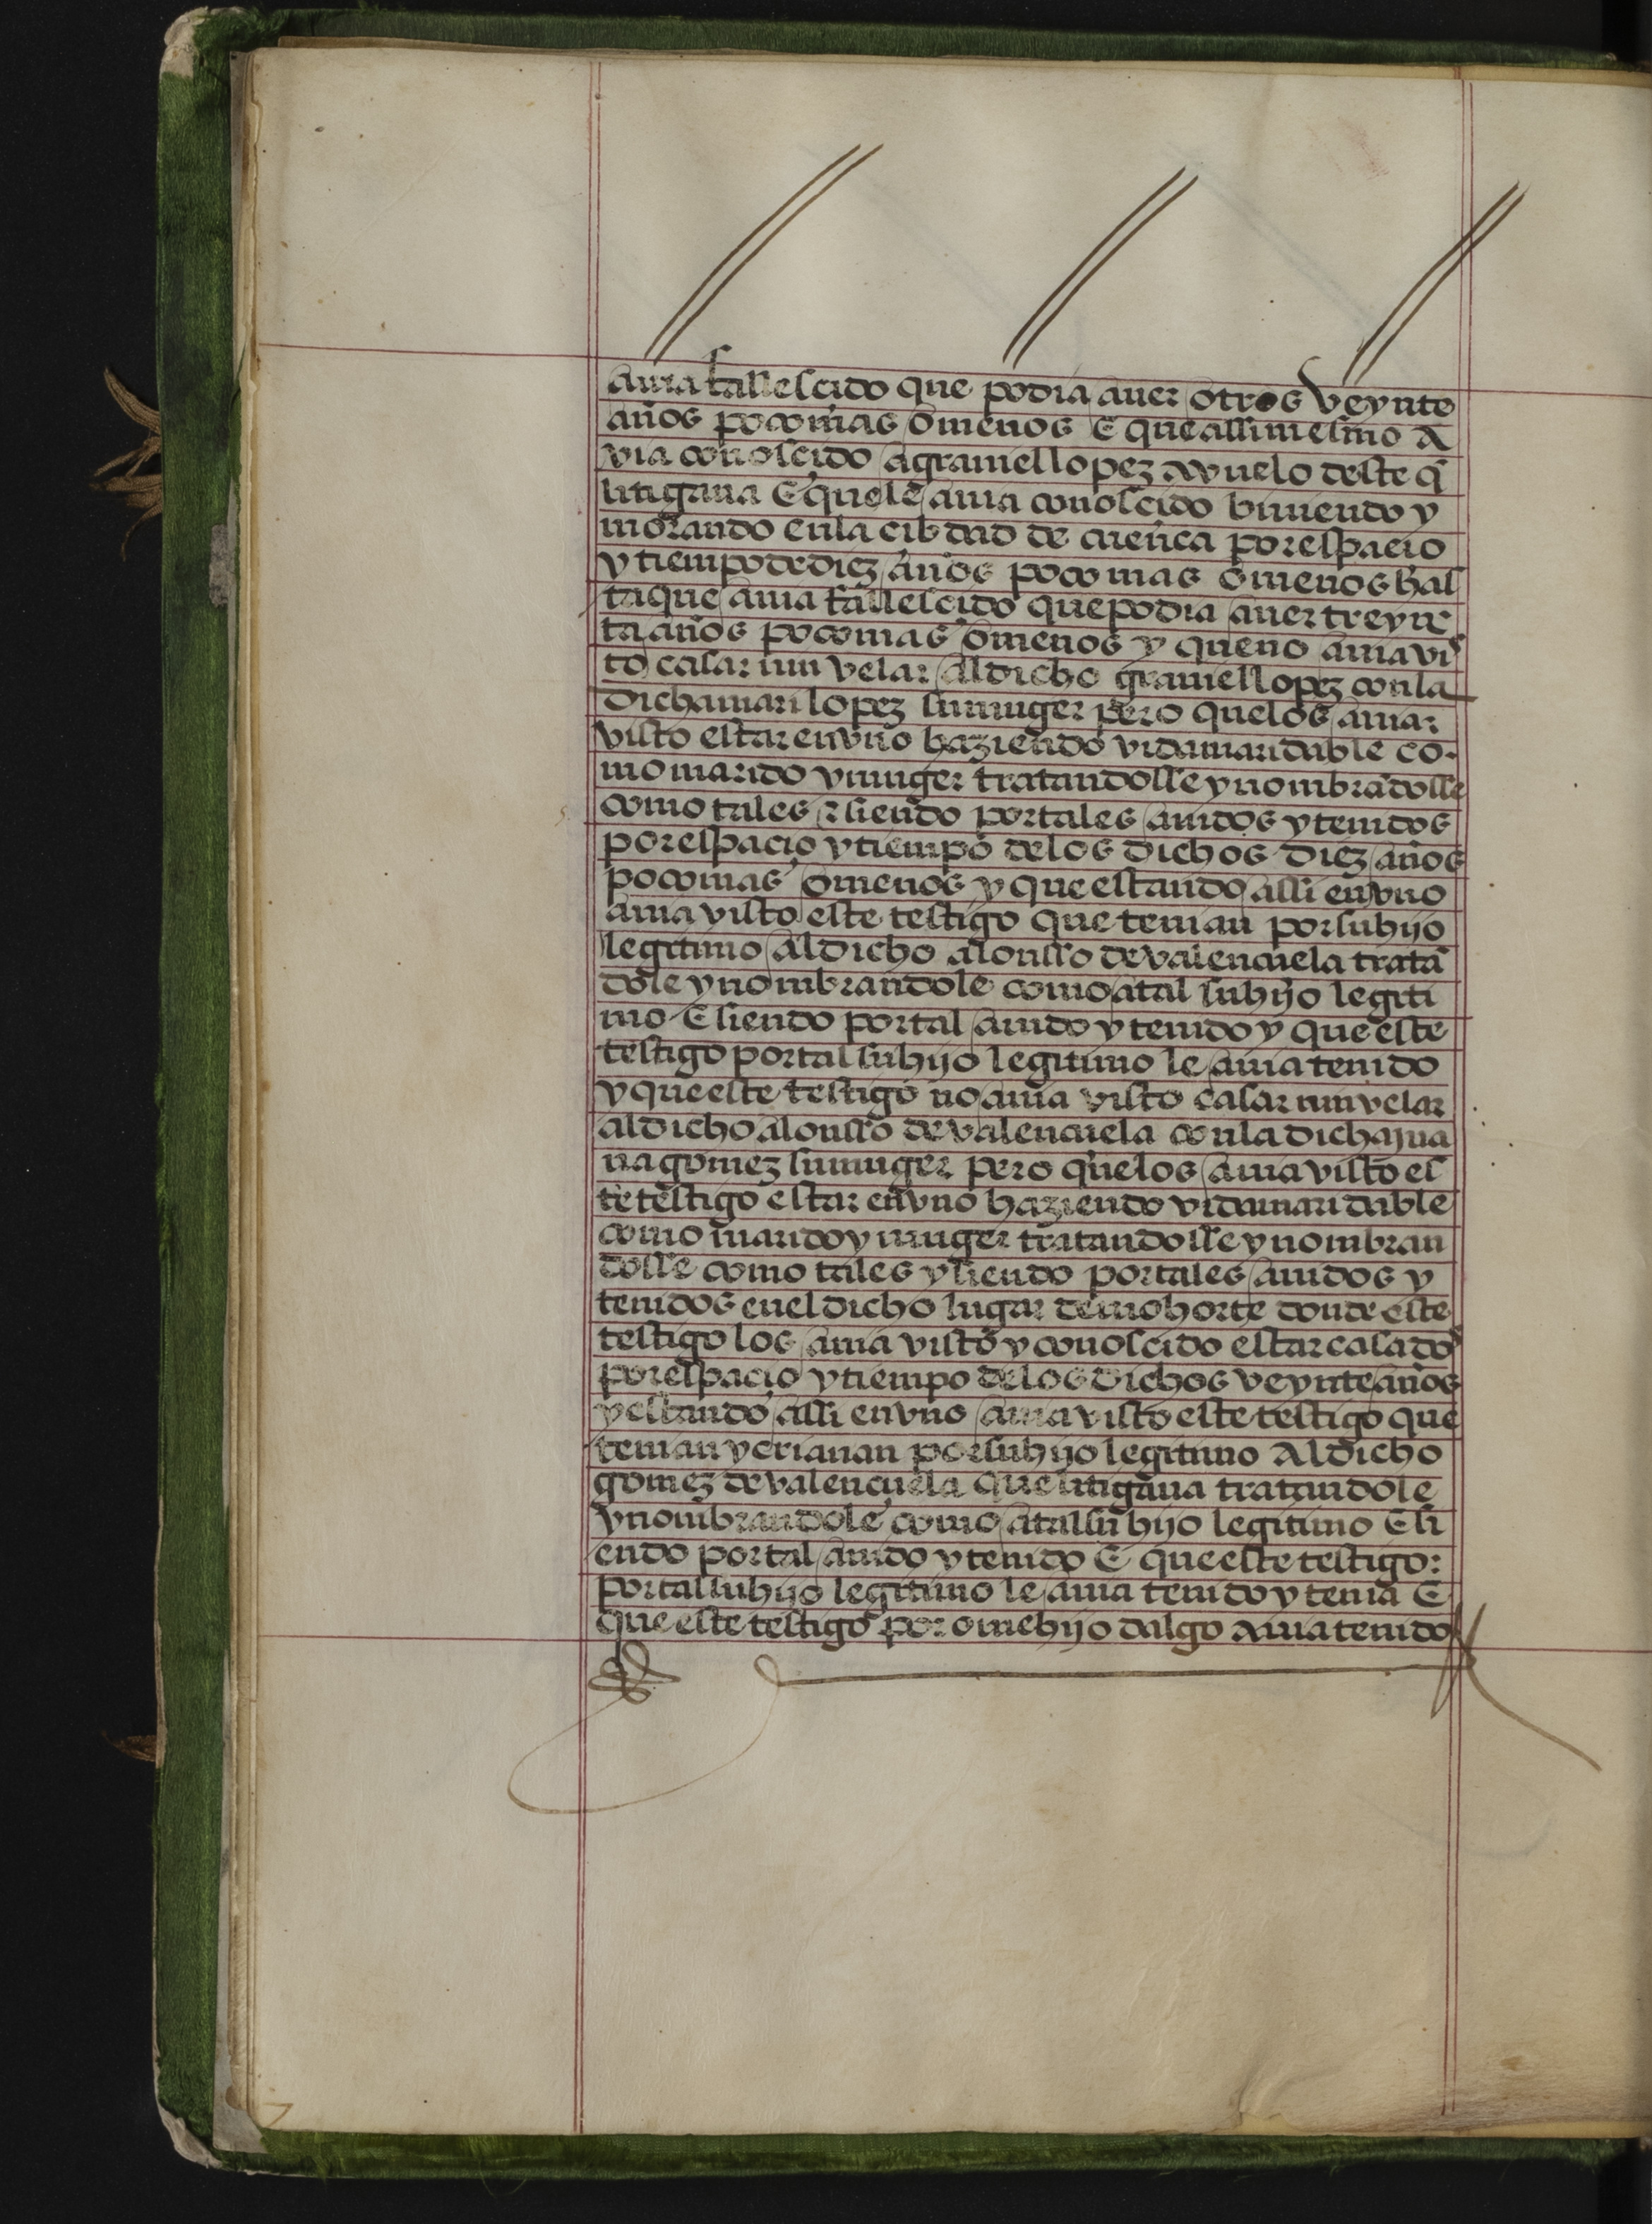 auia fallescido que podia auer otros veynte
años poco mas o menos E que assi mesmo a
via conoscido a grauiel lopez avuelo deste q̃
litigaua E que le auia conoscido biuiendo y
morando en la cibdad de cuenca por espacio
y tiempo de diez años poco mas o menos has
ta que auia fallescido que podia auer treyn
ta años poco mas o menos y que no auia vis
to casar nin velar al dicho grauiel lopez con la
dicha mari lopez su muger pero que los auia
visto estar en vno haziendo vida maridable co
mo marido y muger tratandosse y nombrãdosse
como tales E siendo por tales auidos y tenidos
por espacio y tiempo de los dichos diez años
poco mas o menos y que estando assi en vno
auia visto este testigo que tenian por su hijo
legitimo al dicho alonsso de valençuela tratã
dole y nombrandole como a tal su hijo legiti
mo E siendo por tal auido y tenido y que este
testigo por tal su hijo legitimo le auia tenido
y que este testigo no auia visto casar nin velar
al dicho alonsso de valençuela con la dicha jua
na gomez su muger pero que los auia visto es
te testigo estar en vno haziendo vida maridable
como marido y muger tratandosse y nombran
dosse como tales y siendo por tales auidos y
tenidos en el dicho lugar de mohorte donde este
testigo los auia visto y conoscido estar casados
por espacio y tiempo de los dichos veynte años
y estando assi en vno auia visto este testigo que
tenian y criauan por su hijo legitimo al dicho
gomez de valençuela que litigaua tratandole
y nombrandole como a tal su hijo legitimo E si
endo por tal auido y tenido E que este testigo:
por tal su hijo legitimo le auia tenido y tenia E
que este testigo por ome hijo dalgo auia tenido